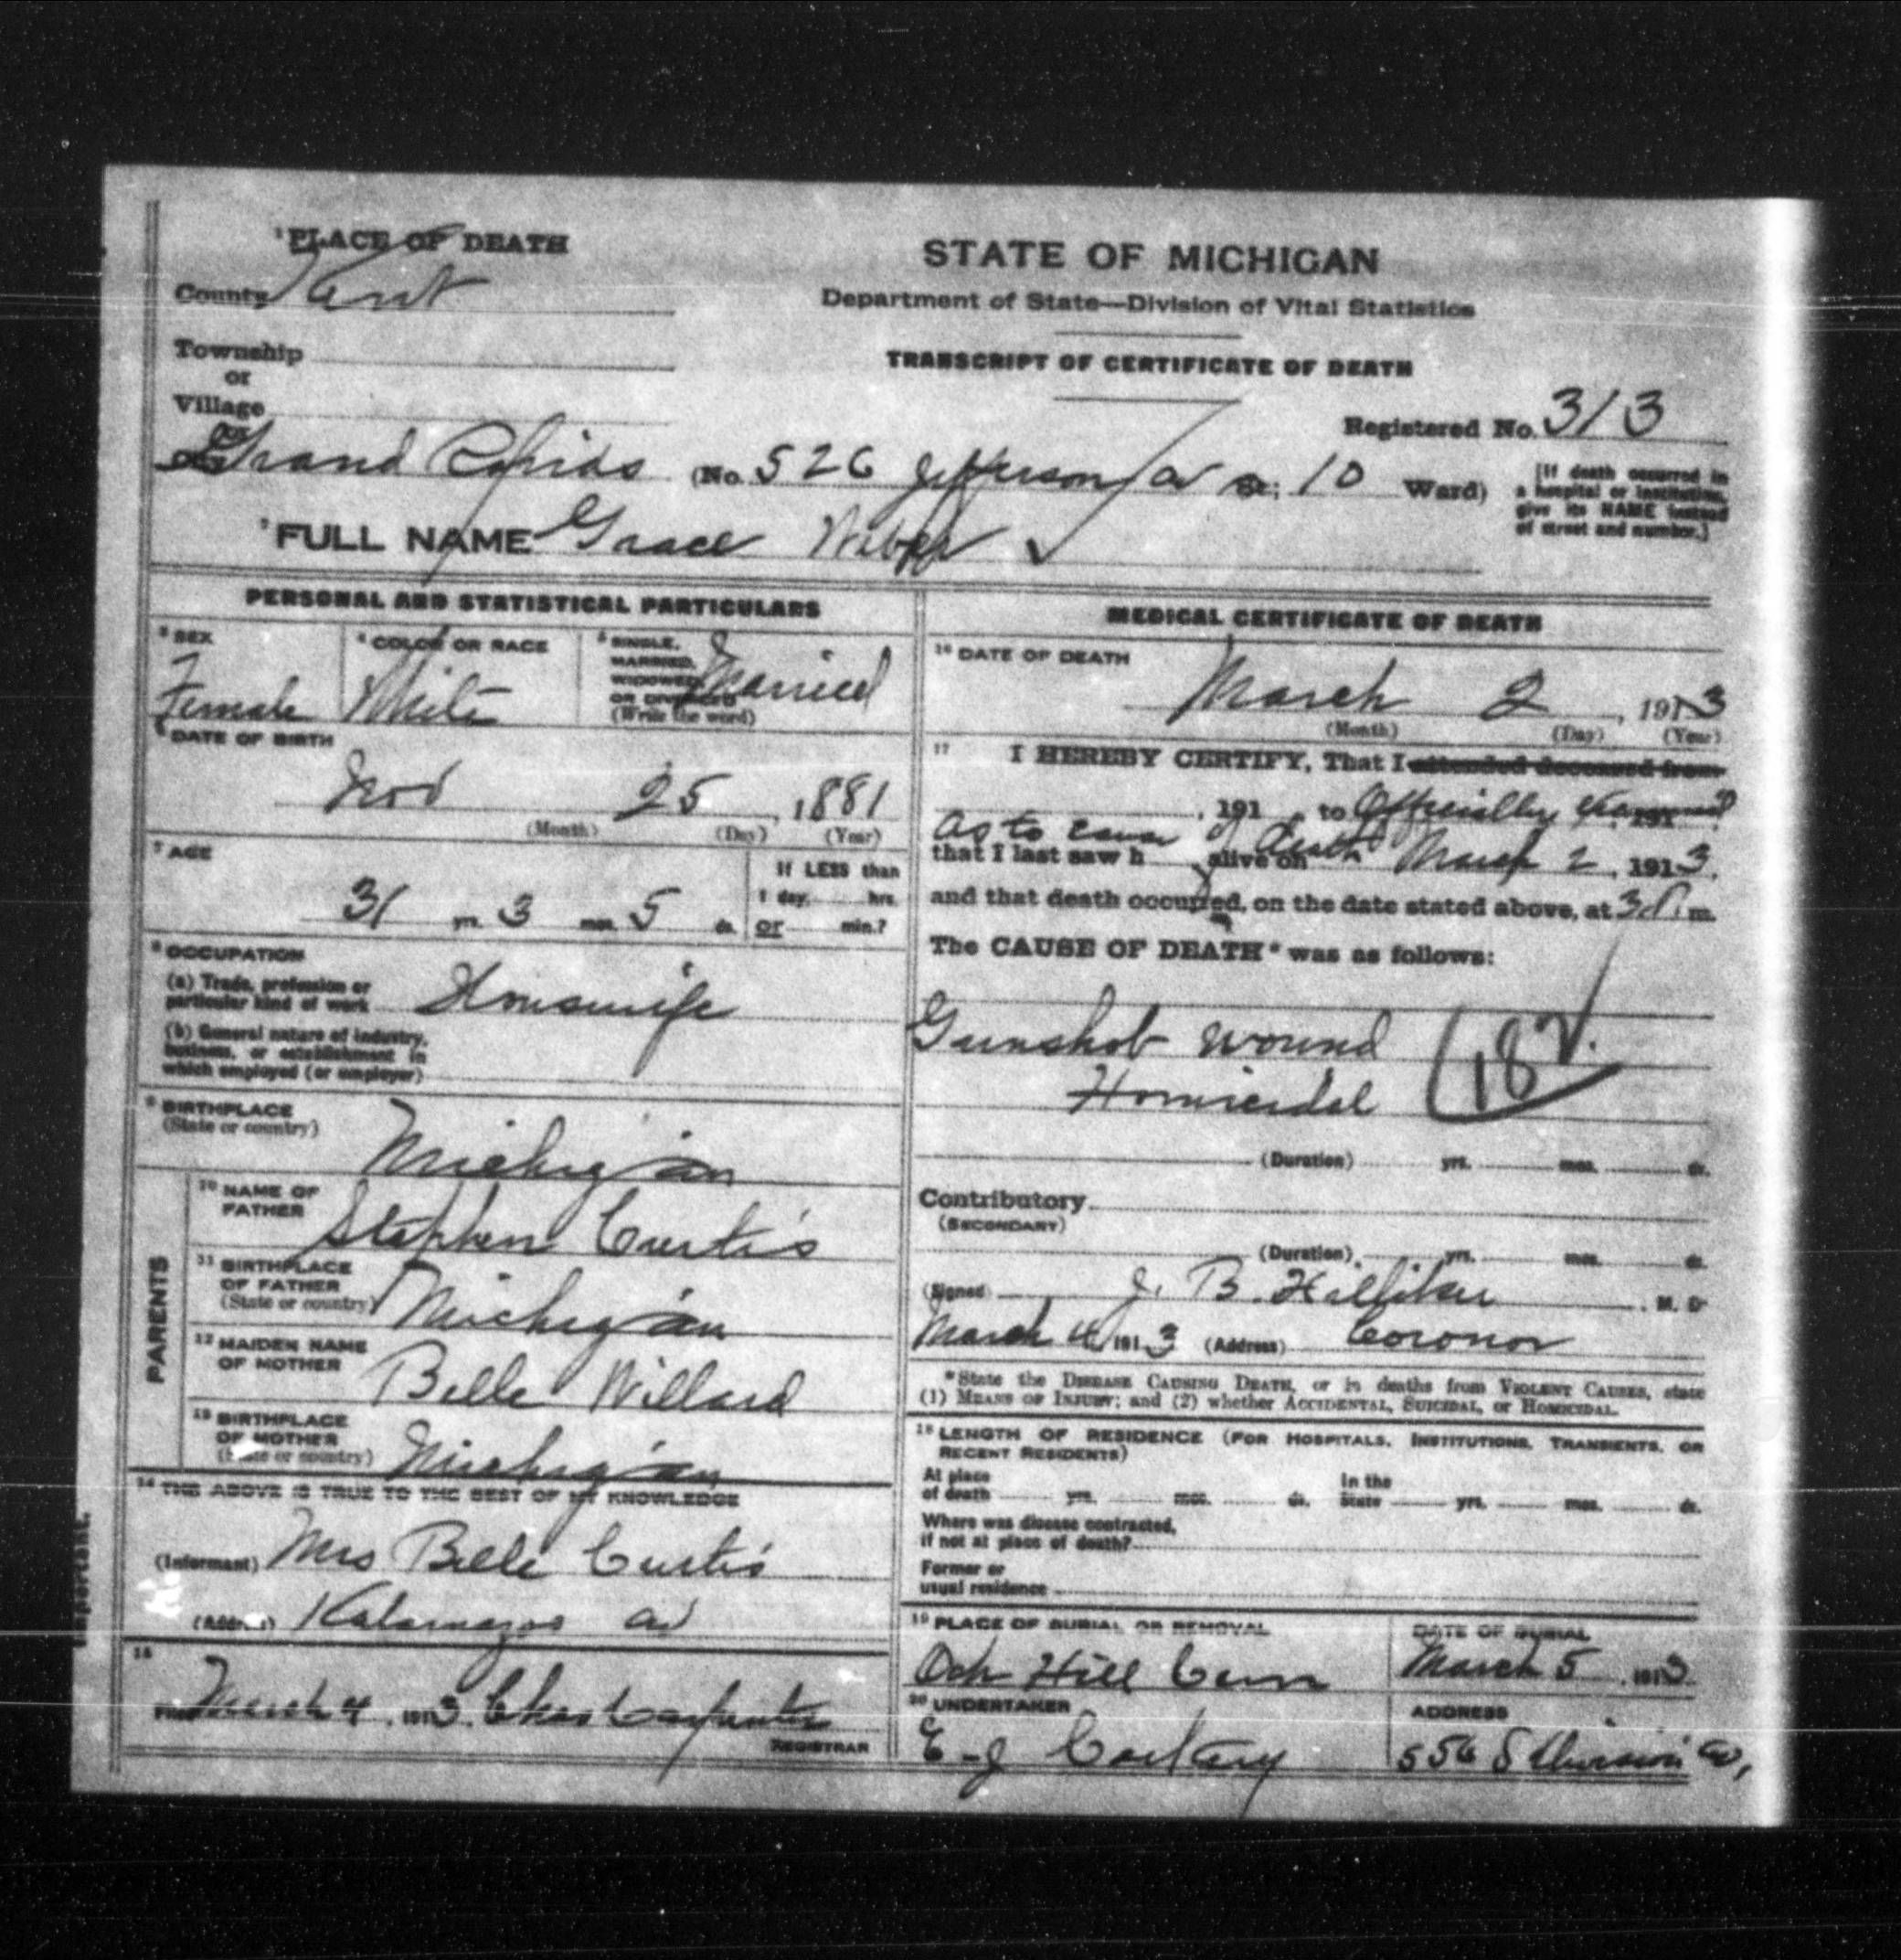 1 PLACE OF DEATH
STATE OF MICHIGAN
County Kent
Department of State—Division of Vital Statistics
Township
TRANSCRIPT OF CERTIFICATE OF DEATH
or
Village
Registered No. 313
or
Grand Rapids (No. 526 Jefferson av St; 10 Ward)
[If death occurred in
a hospital or institution,
give its NAME instead
of street and number.]
2 FULL NAME Grace
PERSONAL AND STATISTICAL PARTICULARS
3 SEX
Female
4 COLOR OR RACE
White
5 SINGLE,
MARRIED,
WIDOWED,
OR DIVORCED
(Write the word)
Married
6 DATE OF BIRTH
Nov 25, 1881
(Month) (Day) (Year)
7 AGE
31 yrs. 3 mos. 5 ds.
If LESS than
1 day, hrs.
or min.?
8 OCCUPATION
(a) Trade, profession or
particular kind of work Housewife
(b) General nature of industry,
business, or establishment in
which employed (or employer)
9 BIRTHPLACE
(State or country)
Michigan
PARENTS
10 NAME OF
FATHER
Stephen Curtis
11 BIRTHPLACE
OF FATHER
(State or country)
Michigan
12 MAIDEN NAME
OF MOTHER
Belle Willard
13 BIRTHPLACE
OF MOTHER
(State or country)
Michigan
14 THE ABOVE IS TRUE TO THE BEST OF MY KNOWLEDGE
(Informant) Mrs Belle Curtis
(Address) Kalamazoo av
15
Filed March 4, 1913. Chas Carpenter
REGISTRAR
MEDICAL CERTIFICATE OF DEATH
16 DATE OF DEATH
March 2, 1913
(Month) (Day) (Year)
17 I HEREBY CERTIFY, That I attended deceased from
, 191 , to Officially examined 191
as to cause of death
that I last saw h alive on March 2, 1913.
and that death occurred, on the date stated above, at 3 P. m.
The CAUSE OF DEATH* was as follows:
Gunshot wound
182.
Homicidal
(Duration) yrs. mos. ds.
Contributory
(SECONDARY)
(Duration) yrs. mos. ds.
(Signed) J. B. Hilliker, M. D
March 4, 1913 (Address) Coronor
*State the DISEASE CAUSING DEATH, or in deaths from VIOLENT CAUSES, state
(1) MEANS OF INJURY; and (2) whether ACCIDENTAL, SUICIDAL, or HOMICIDAL.
18 LENGTH OF RESIDENCE (FOR HOSPITALS, INSTITUTIONS, TRANSIENTS, OR
RECENT RESIDENTS)
At place
of death yrs. mos. ds.
In the
State yrs. mos. ds.
Where was disease contracted,
if not at place of death?
Former or
usual residence
19 PLACE OF BURIAL OR REMOVAL
Oak Hill Cem
DATE OF BURIAL
March 5, 1913
20 UNDERTAKER
E. J.
ADDRESS
556 S Division av,
important.